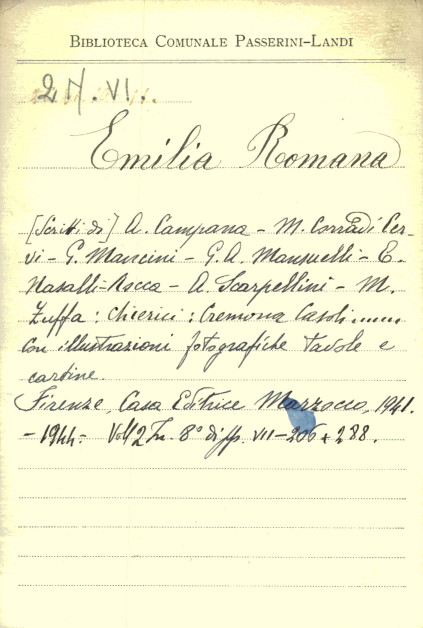 BIBLIOTECA COMUNALE PASSERINI-LANDI
27.VI.
Emilia Romana
[Scritti di] A. Campana - M. Corradi Cer-
vi - G. Mancini - G. A. Mansuelli - E.
Nasalli-Rocca - A. Scarpellini - M.
Zuffa: Chierici: Cremona Casoli......
Con illustrazioni fotografiche tavole e
cartine.
Firenze, Casa Editrice Marzocco, 1941.
- 1944- Voll 2 In. 8° di pp. VII-206+288.